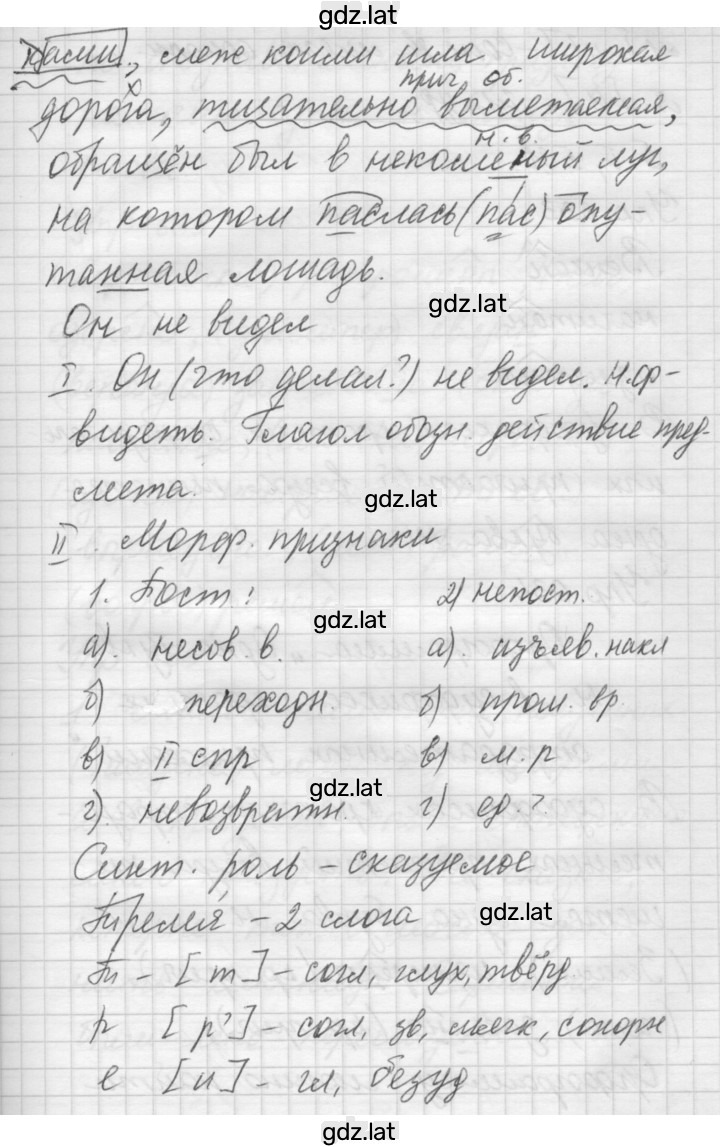 gdz.lat
ками, меж коими шла широкая
прич. об.
дорога, тщательно выметаемая,
н. в.
обращён был в некошёный луг,
на котором паслась (пас) опу-
танная лошадь.
gdz.lat
Он не видел
I. Он (что делал?) не видел. Н.ф-
видеть. Глагол обозн. действие пред-
мета.
gdz.lat
II. Морф. признаки
1. Пост: 2) непост.
gdz.lat
а). несов. в. а). изъяв. накл
б) переходн. б) пром. вр.
в) II спр в) м. р
gdz.lat
г). невозвратн. г) ед ?.
Синт. роль – сказуемое
gdz.lat
– 2 слога
[т] – согл, глух, твёрд
р [р'] – согл, зв, мягк, сонорн
е [и] – гл, безуд
gdz.lat